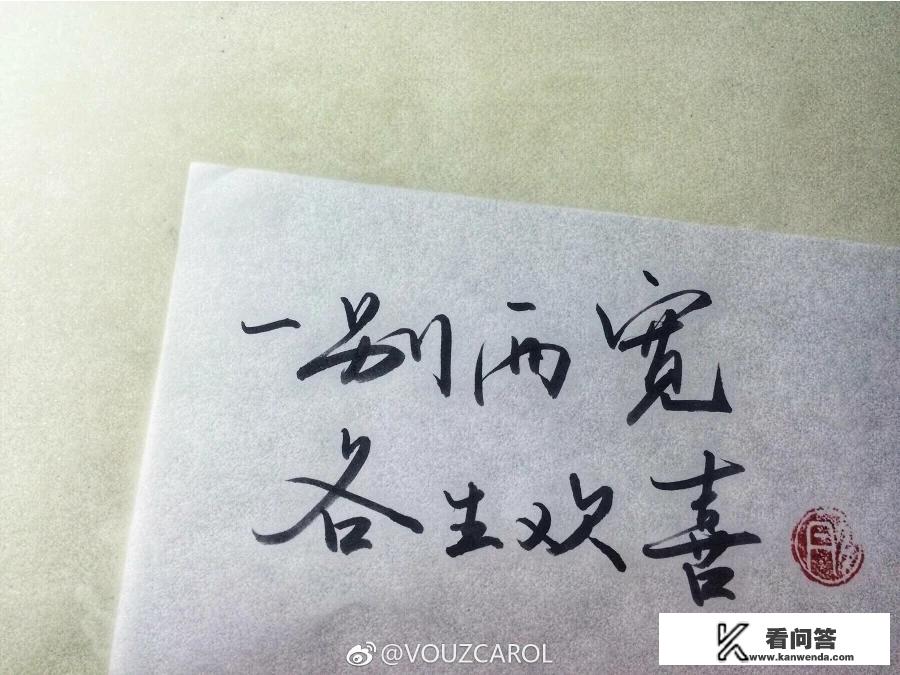 一别两宽
各生欢喜
@VOUZCAROL
K 看问答
www.kanwenda.com